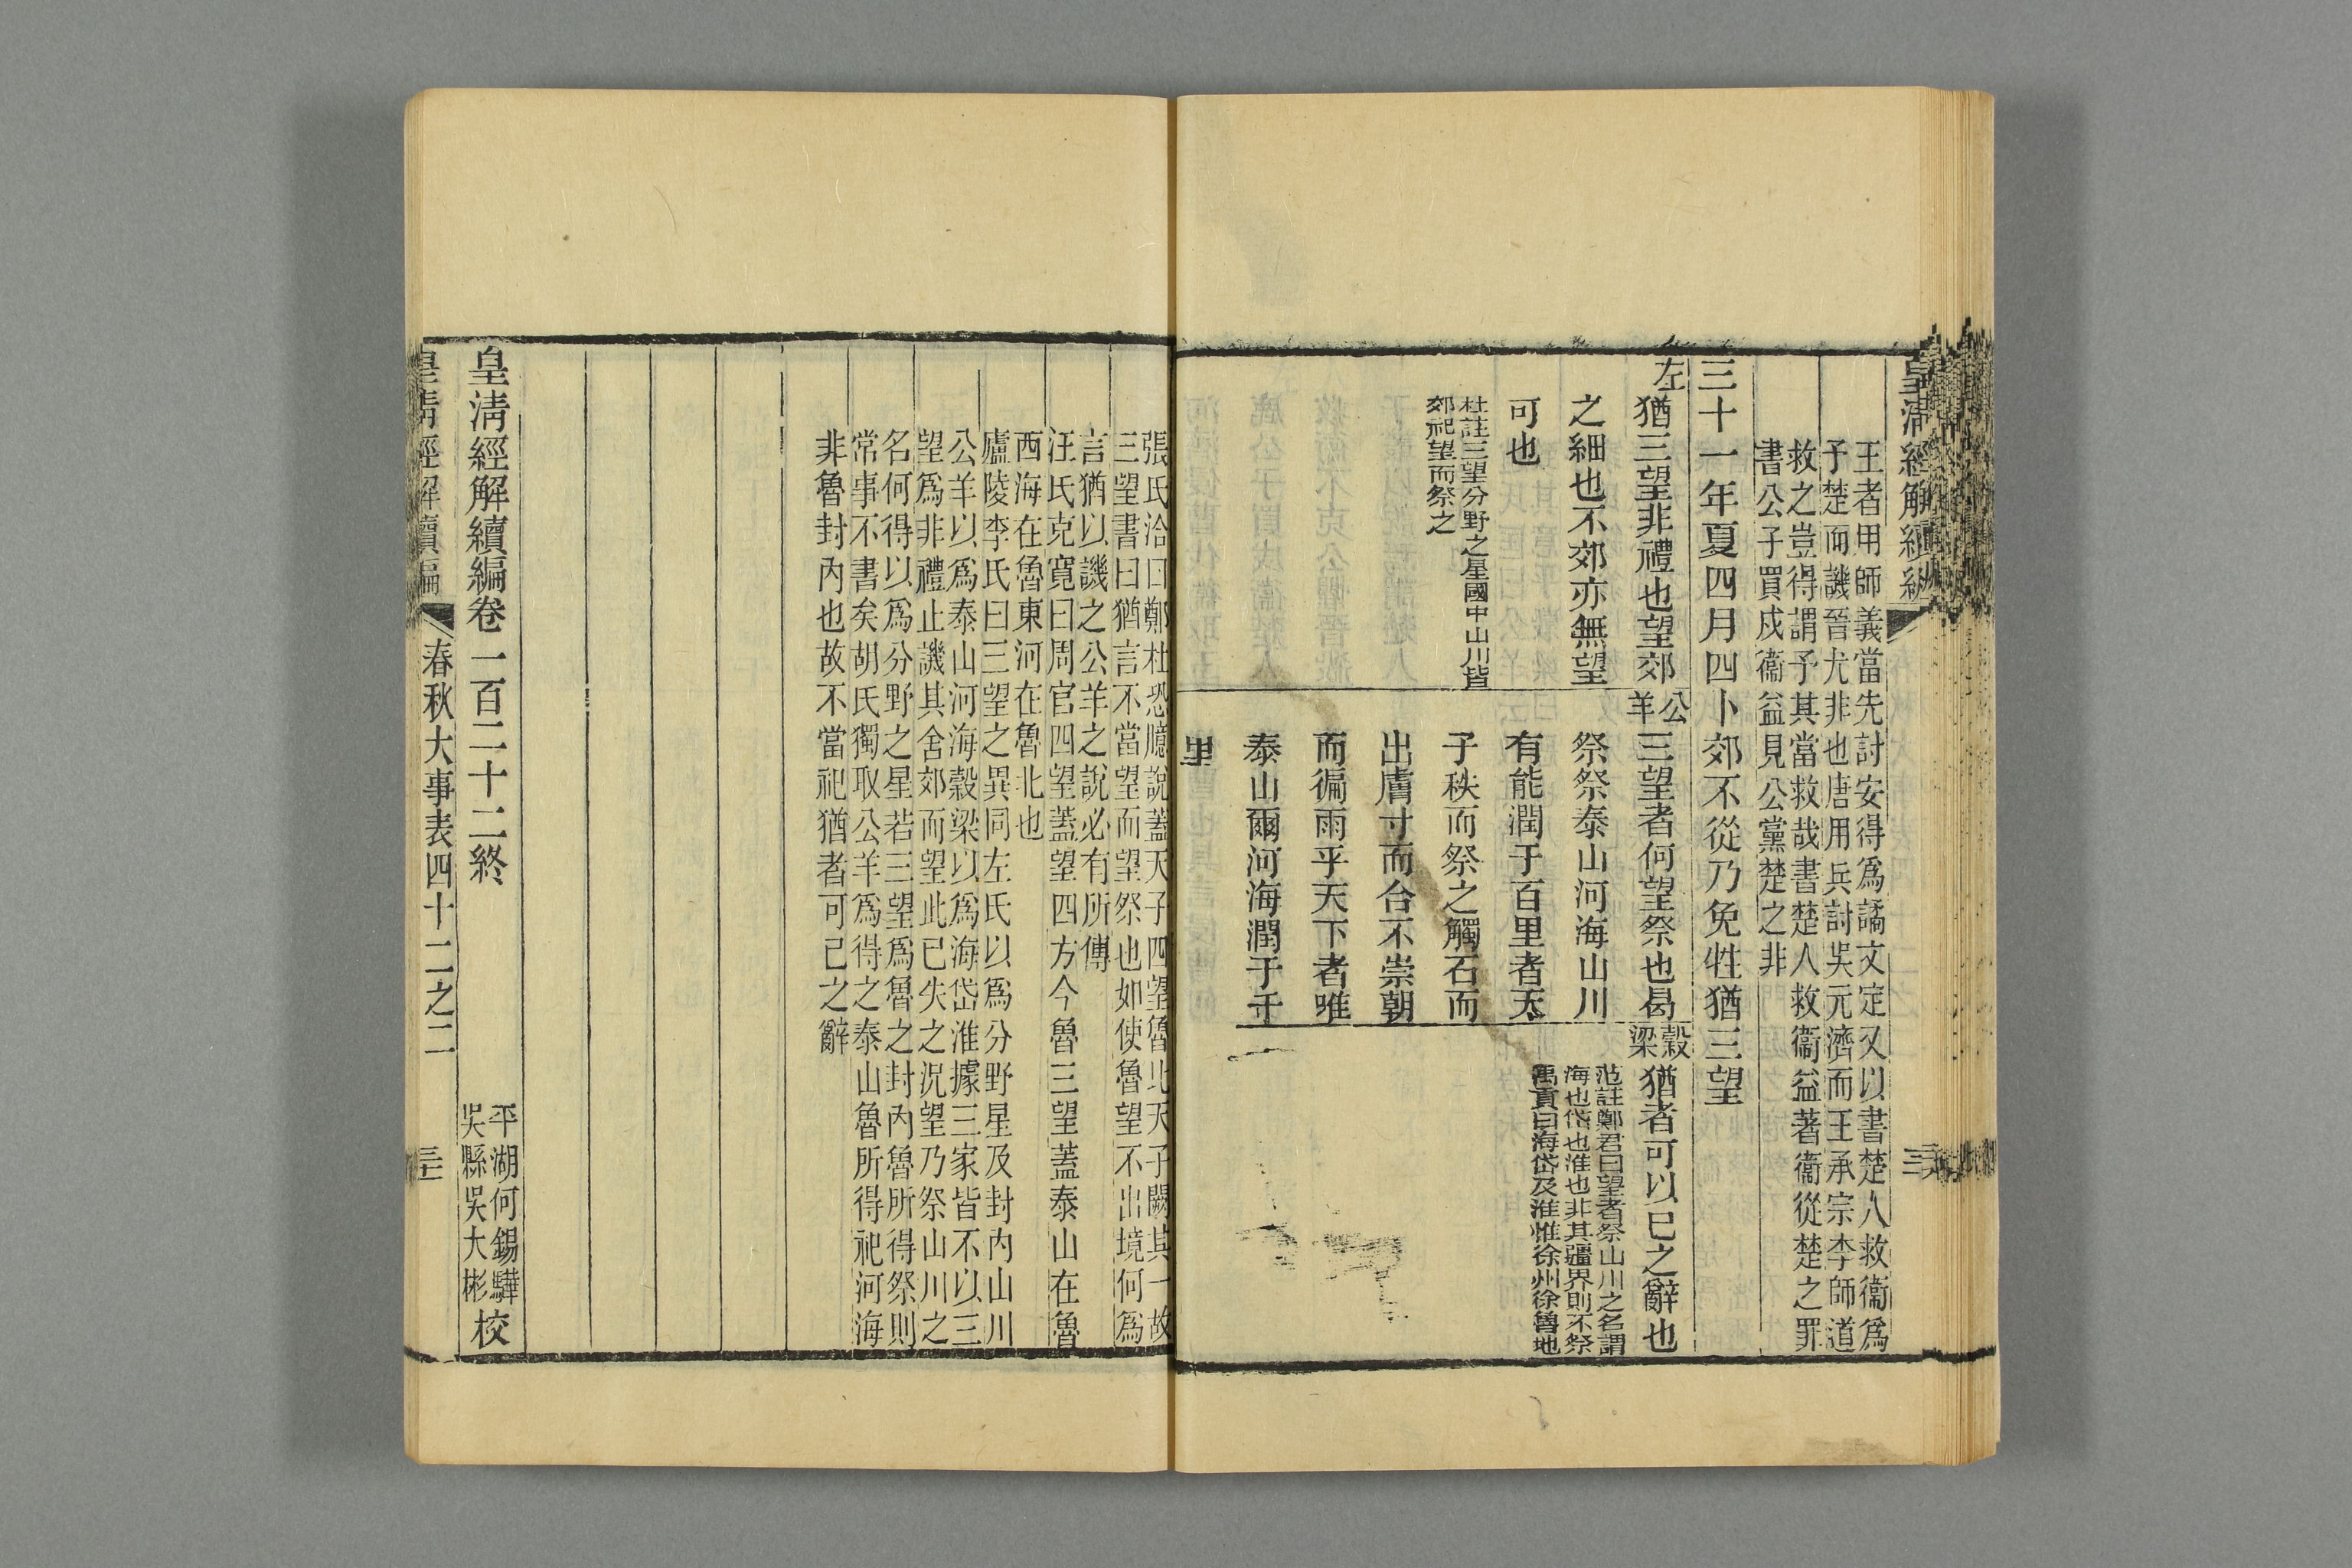 皇清經解續編
王者用師義當先討安得爲譎文定又以書楚人救衞爲
予楚而譏晉尤非也唐用兵討吳元濟而王承宗李師道
救之豈得謂予其當救哉書楚人救衞益著衞從楚之罪
書公子買戍衞益見公黨楚之非
三十一年夏四月四卜郊不從乃免牲猶三望
左
猶三望非禮也望郊
之細也不郊亦無望
可也
杜註三望分野之星國中山川皆
郊祀望而祭之
公
羊
三望者何望祭也曷
祭祭泰山河海山川
有能潤于百里者天
子秩而祭之觸石而
出膚寸而合不崇朝
而徧雨乎天下者唯
泰山爾河海潤于千
里
穀
梁
猶者可以已之辭也
范註鄭君曰望者祭山川之名謂
海也岱也淮也非其疆界則不祭
禹貢曰海岱及淮惟徐州徐魯地
張氏洽曰鄭杜恐臆說蓋天子四望魯北天子闕其一故
三望書曰猶言不當望而望祭也如使魯望不出境何爲
言猶以譏之公羊之說必有所傳
汪氏克寬曰周官四望蓋望四方今魯三望蓋泰山在魯
西海在魯東河在魯北也
廬陵李氏曰三望之異同左氏以爲分野星及封內山川
公羊以爲泰山河海穀梁以爲海岱淮據三家皆不以三
望爲非禮止譏其舍郊而望此已失之況望乃祭山川之
名何得以爲分野之星若三望爲魯之封內魯所得祭則
常事不書矣胡氏獨取公羊爲得之泰山魯所得祀河海
非魯封內也故不當祀猶者可已之辭
皇清經解續編卷一百二十二終
平湖何錫驊
吳縣吳大彬
校
皇清經解續編
春秋大事表四十二之二